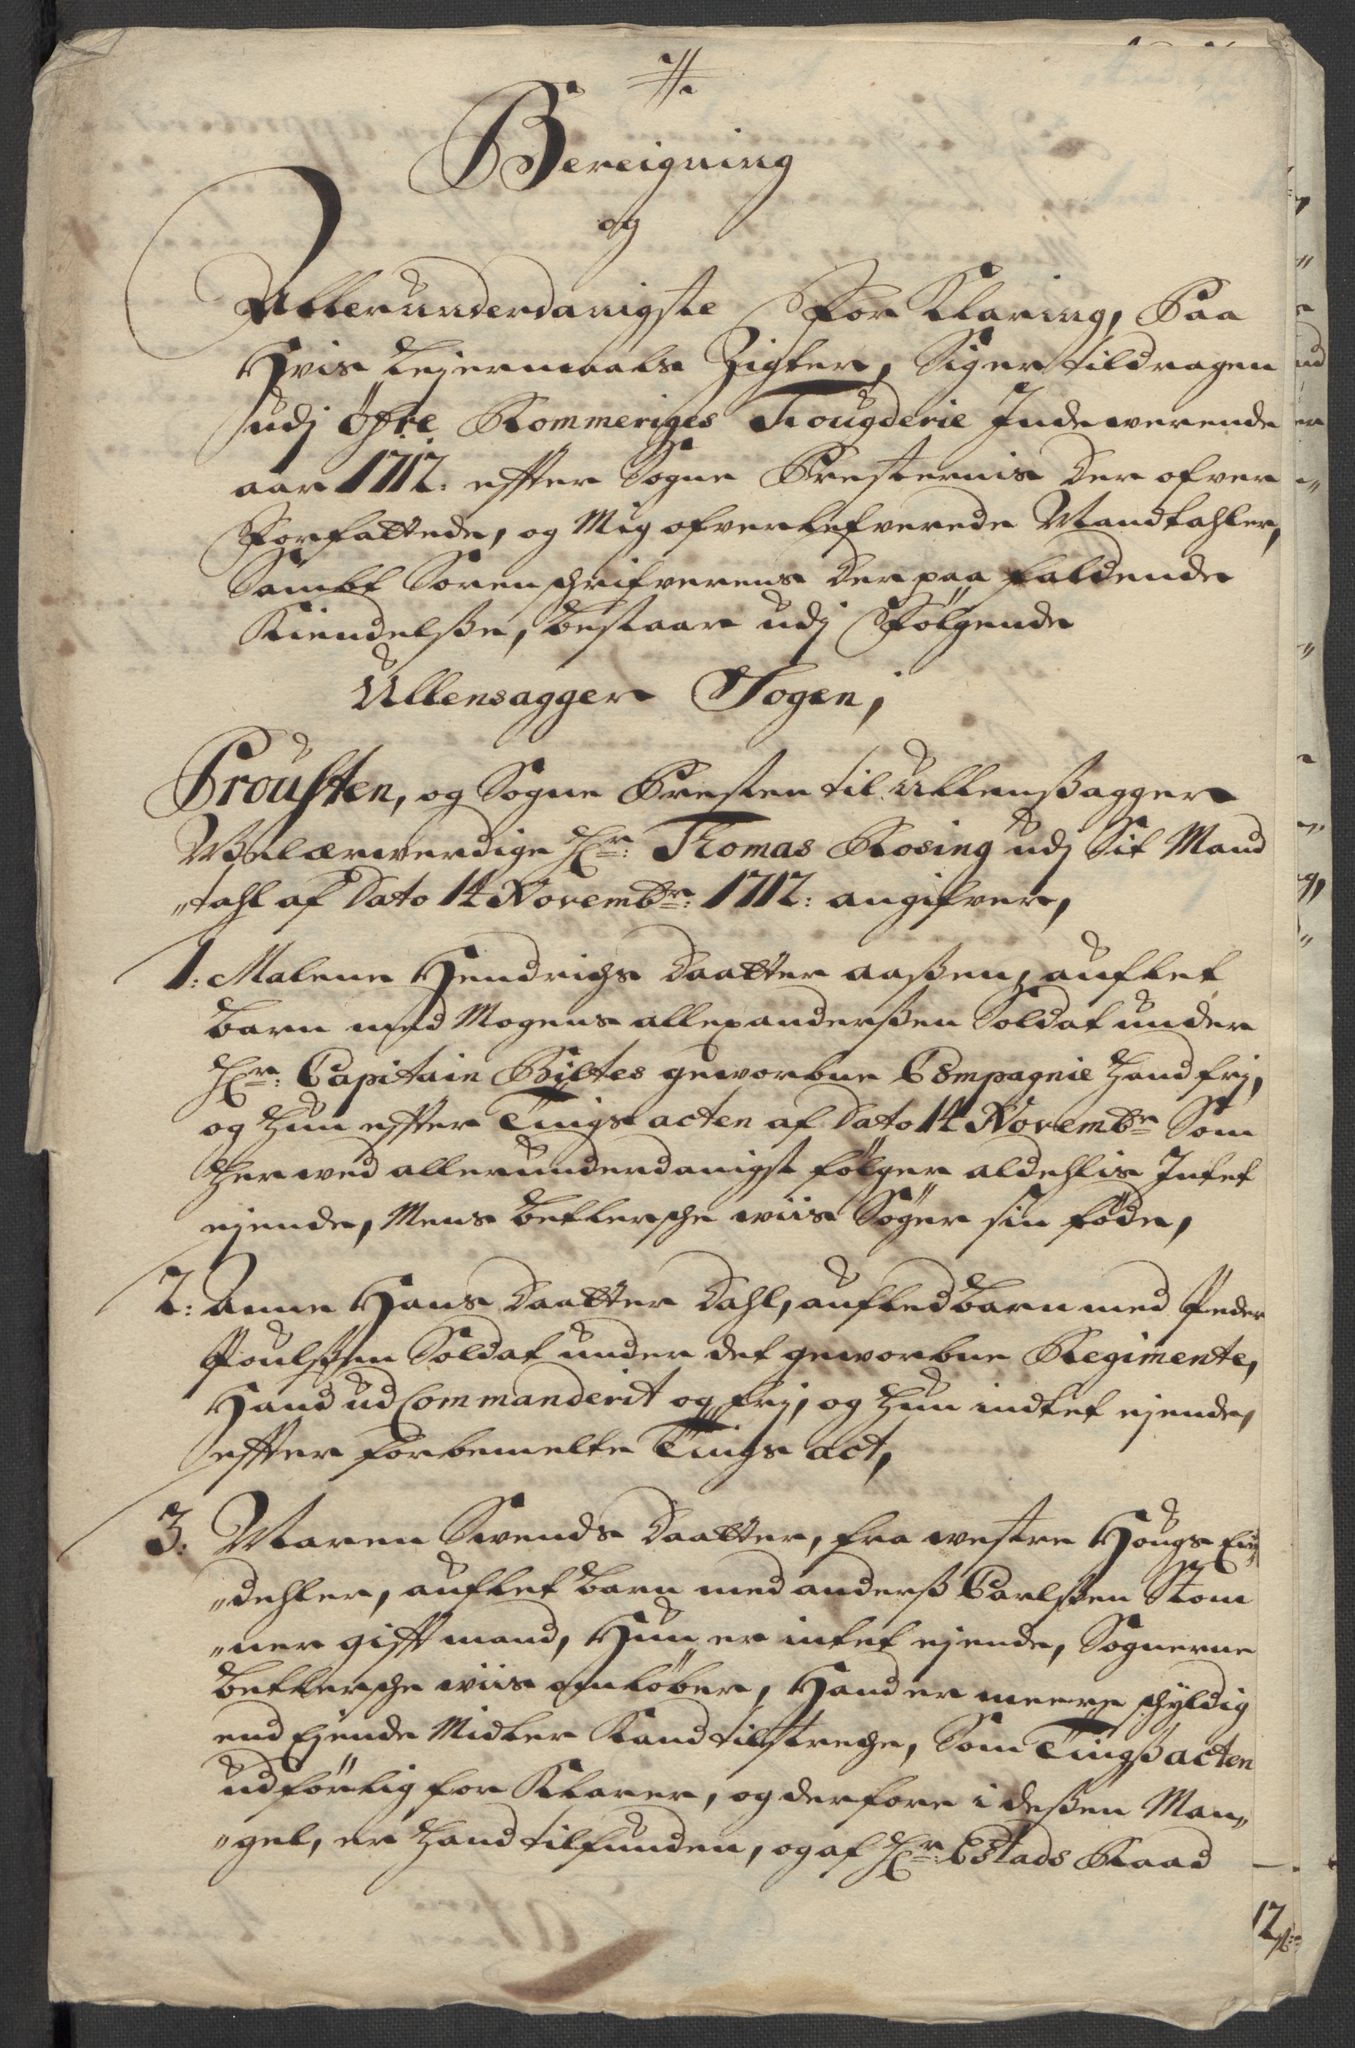 Bereigning
og
Allerunderdanigste For Klaring, Paa
Hvis Lejermaals Zigter, Sig er tildragen
udj Öfre Rommeriges Fougderie Indewerende
aar 1712: effter Sogne Presternis der ofver
forfattede, og Mig ofverlefverede Mandtahler,
Sambt Sorenschrifverens derpaa faldende
Kiendelsße, bestaar udj Følgende
Ullensagger Sogen,
Prousten, og Sogne Presten til Ullensßagger
Welærwerdige Hr: Thomas Rosing udj Sit Mand
"tahl af Dato 14 Novembr: 1712: angifver,
1: Malene Hendrichs Daatter aaßen, auflet
barn med Mogens allexanderßen Soldat under
Hr: Capitain Biltes geworbne Compagnie Hand frj,
og Hun effter Tings acten af Dato 14 Novembr Som
herwed allerunderdanigst følger aldehlis Intet
ejende, Mens betlersche wiis Søger sin føde,
2: Anne Hans Daatter Dahl, aufled barn med Peder
Poulsßen Soldat under det geworbne Regimente,
Hand ud Commanderit og frj, og Hun indtet ejende,
effter forbemelte Tings act,
3: Maren Swends Daatter, fra westre Hougs Ein
"dehler, auflet barn med anderß Carlsßen Stom
"ner gifft mand, Hun er intet ejende, Sognerne
betlersche wiis omløber, Hand er meere schyldig
end Ejende Midler Kand tilstreche, Som Tingsßacten
udførlig for Klarer, og derfore i deßen Man„
"gel, er Hand tilfunden, og af Hr: Etads Raad
12